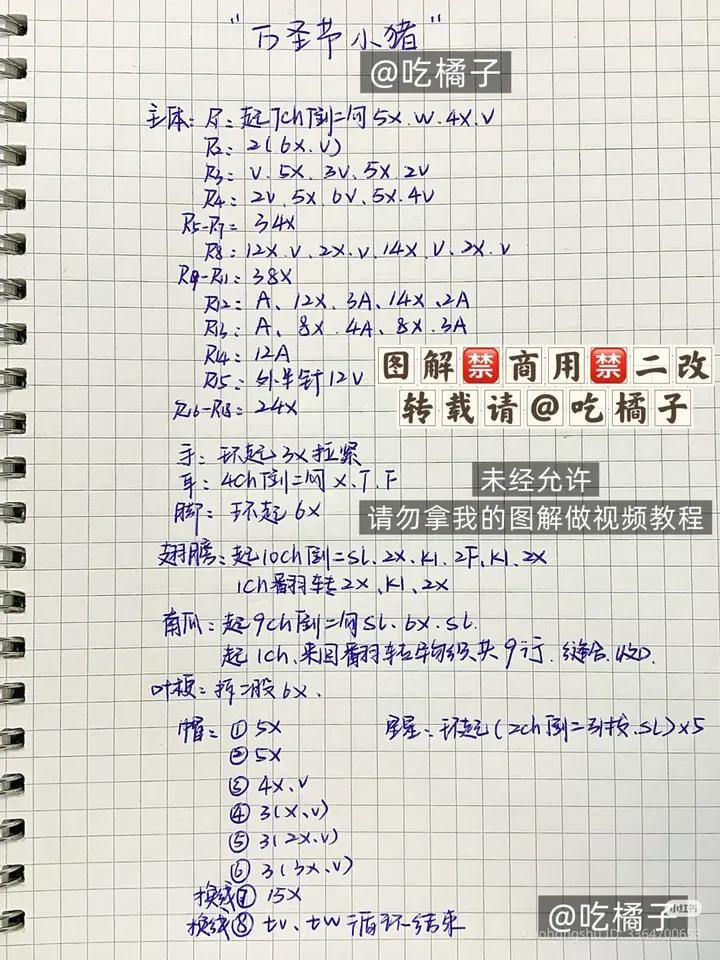 "万圣节小猪"
@吃橘子
主体: R1: 起7ch倒二向 5X.W.4X.V
R2: 2(6X.V)
R3: V.5X.3V.5X.2V
R4: 2V.5X.6V.5X.4V
R5-R7: 34X
R8: 12X.V、2X.V.14X.V、2X.V
R9-R11: 38X
R12: A、12X.3A.14X.2A
R13: A、8X.4A、8X.3A
R14: 12A
R15: 外半针12V
R16-R18: 24X
图解禁商用禁二改
转载请@吃橘子
手: 环起3X拉紧
耳: 4ch倒二向 X.T.F
脚: 环起6X
未经允许
请勿拿我的图解做视频教程
翅膀: 起10ch倒二SL.2X.K1.2F.K1.2X
1ch翻转2X.K1.2X
南瓜: 起9ch倒二向SL.6X.SL.
起1ch、来回翻转钩织共9行.缝合.收口
叶梗: 拆二股6X.
帽: ① 5X
星星: 环起(2ch倒二引拔.SL)×5
② 5X
③ 4X.V
④ 3(X.V)
⑤ 3(2X.V)
⑥ 3(3X.V)
换线⑦ 15X
换线⑧ tV、tW循环结束
@吃橘子
小红书
xiaohongshu ID: 3364700653